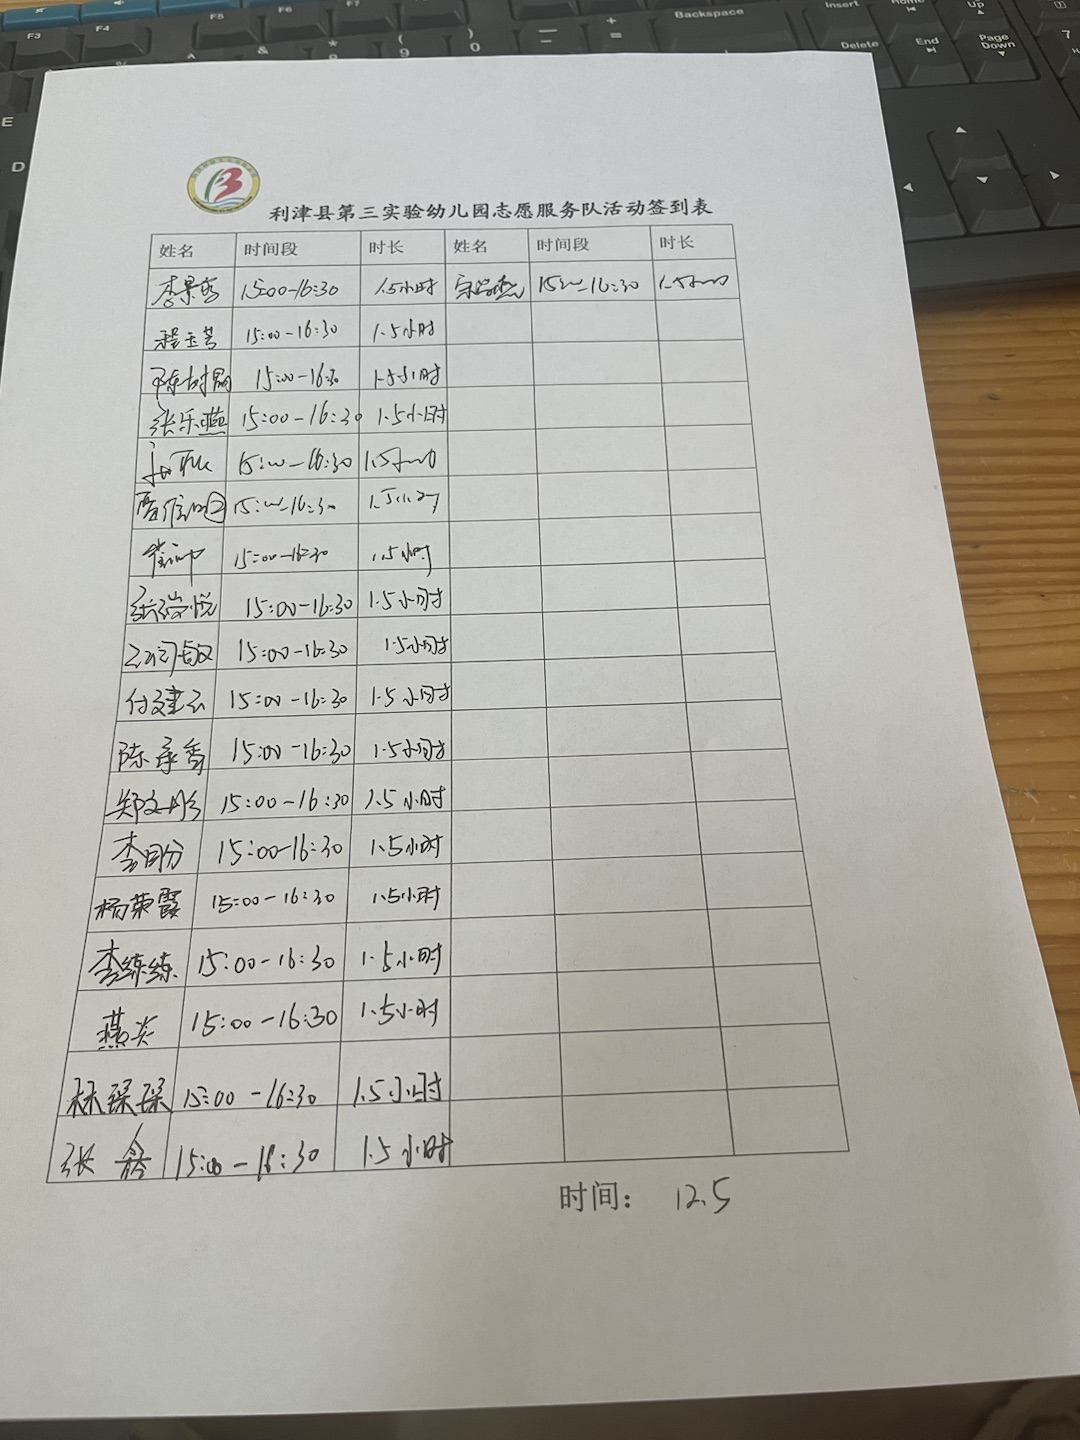 利津县第三实验幼儿园志愿服务队活动签到表
姓名 时间段 时长 姓名 时间段 时长
李景 15:00-16:30 1.5小时 15:00-16:30 1.5小时
程玉芳 15:00-16:30 1.5小时
陈树 15:00-16:30 1.5小时
张乐燕 15:00-16:30 1.5小时
15:00-16:30 1.5小时
15:00-16:30 1.5小时
15:00-16:30 1.5小时
张瑞悦 15:00-16:30 1.5小时
敏 15:00-16:30 1.5小时
付建云 15:00-16:30 1.5小时
陈承香 15:00-16:30 1.5小时
郑文彤 15:00-16:30 1.5小时
李日分 15:00-16:30 1.5小时
杨荣霞 15:00-16:30 1.5小时
李练练 15:00-16:30 1.5小时
燕炎 15:00-16:30 1.5小时
林琛琛 15:00-16:30 1.5小时
张 15:00-16:30 1.5小时
时间: 12.5
F3 F4 F5 F6 F7 Backspace Insert Home Page Up
Delete End Page Down
E
D